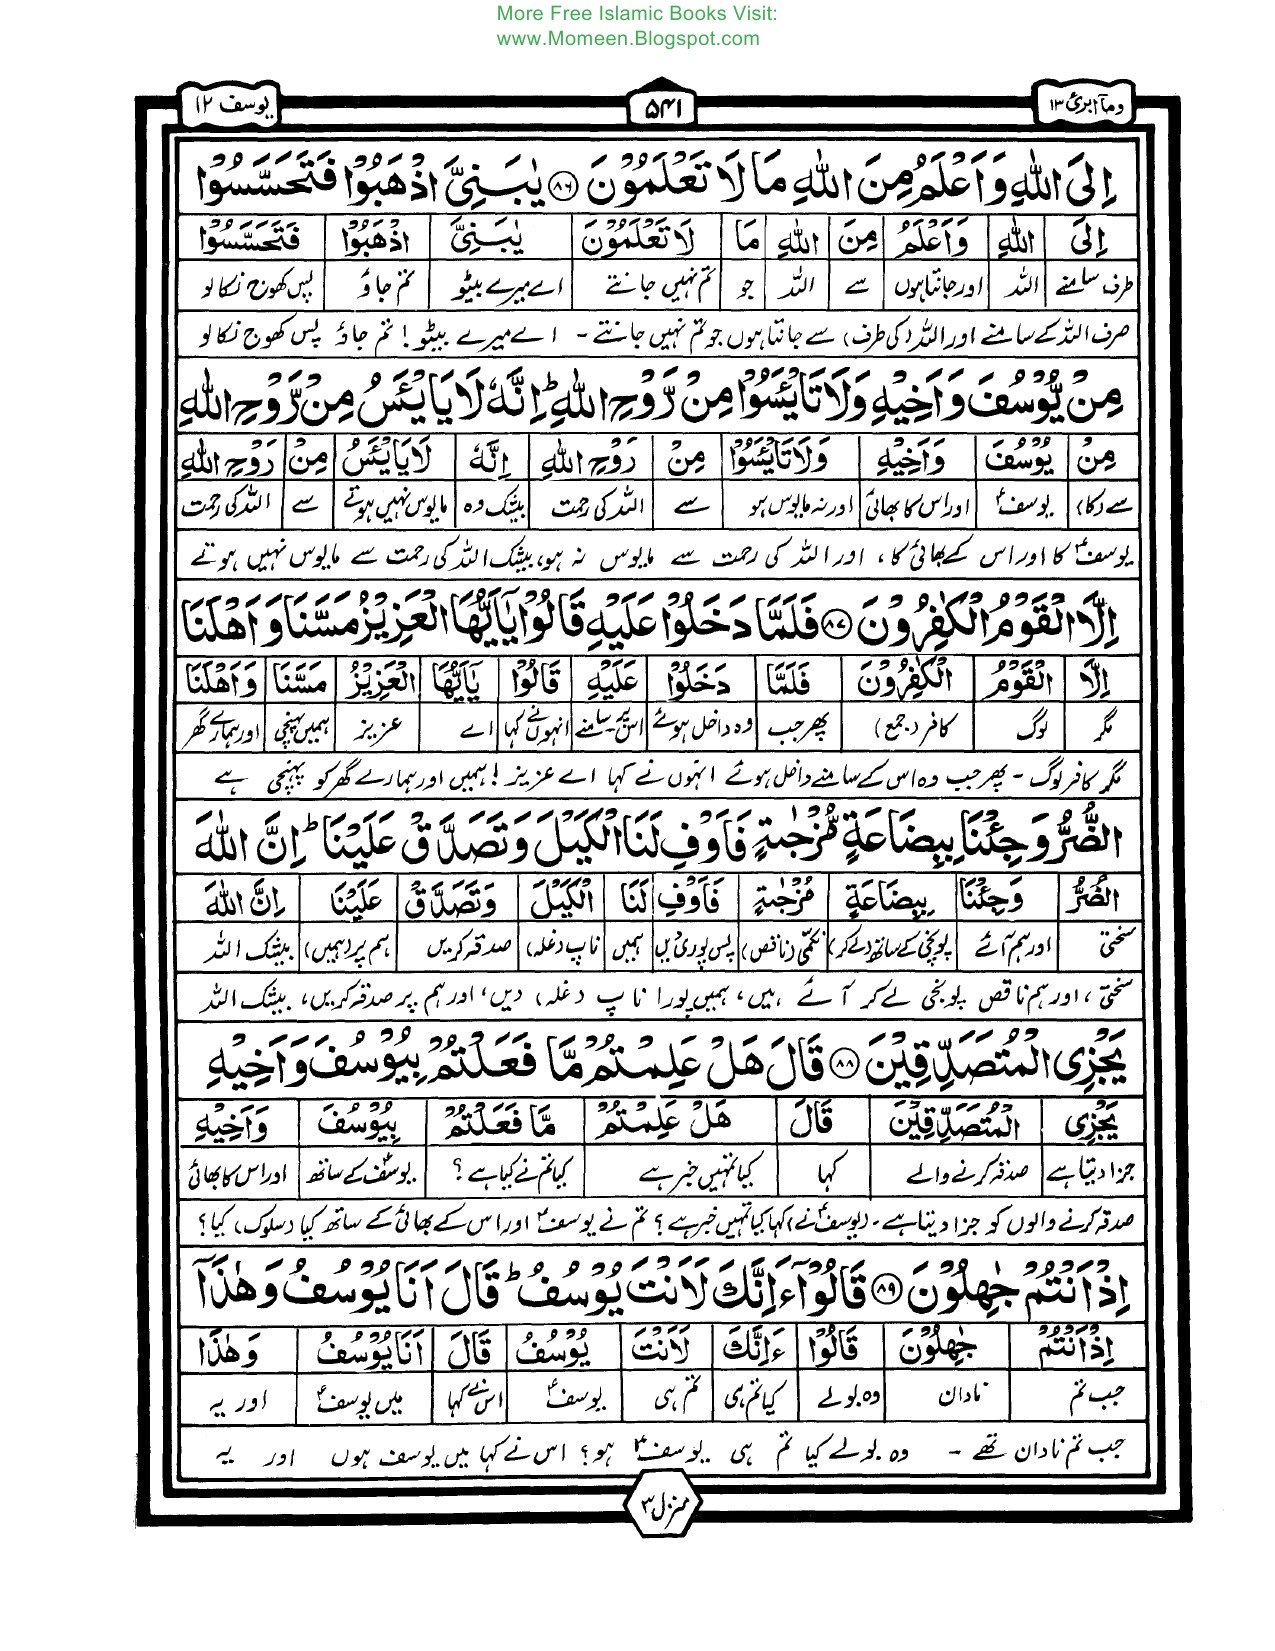 More Free Islamic Books Visit:
www.Momeen.Blogspot.com
وماۤ ابرئ ۱۳ ۵۴۱ یوسف ۱۲
اِلَى اللّٰهِ وَاَعْلَمُ مِنَ اللّٰهِ مَا لَا تَعْلَمُوْنَ ۸۶ یٰبَنِیَّ اذْهَبُوْا فَتَحَسَّسُوْا
اِلَى اللّٰهِ وَاَعْلَمُ مِنَ اللّٰهِ مَا لَا تَعْلَمُوْنَ یٰبَنِیَّ اذْهَبُوْا فَتَحَسَّسُوْا
طرف سامنے اللہ اور جانتا ہوں سے اللہ جو تم نہیں جانتے اے میرے بیٹو تم جاؤ پس کھوج نکالو
صرف اللہ کے سامنے اور اللہ (کی طرف) سے جانتا ہوں جو تم نہیں جانتے - اے میرے بیٹو! تم جاؤ پس کھوج نکالو
مِنْ یُّوْسُفَ وَاَخِیْهِ وَلَا تَایْـَٔسُوْا مِنْ رَّوْحِ اللّٰهِ ؕ اِنَّهٗ لَا یَایْـَٔسُ مِنْ رَّوْحِ اللّٰهِ
مِنْ یُوْسُفَ وَاَخِیْهِ وَلَا تَایْـَٔسُوْا مِنْ رَوْحِ اللّٰهِ اِنَّهٗ لَا یَایْـَٔسُ مِنْ رَوْحِ اللّٰهِ
سے (کا) یوسفؑ اور اس کا بھائی اور نہ مایوس ہو سے اللہ کی رحمت بیشک وہ مایوس نہیں ہوتے سے اللہ کی رحمت
یوسفؑ کا اور اس کے بھائی کا، اور اللہ کی رحمت سے مایوس نہ ہو، بیشک اللہ کی رحمت سے مایوس نہیں ہوتے
اِلَّا الْقَوْمُ الْكٰفِرُوْنَ ۸۷ فَلَمَّا دَخَلُوْا عَلَیْهِ قَالُوْا یٰۤاَیُّهَا الْعَزِیْزُ مَسَّنَا وَاَهْلَنَا
اِلَّا الْقَوْمُ الْكٰفِرُوْنَ فَلَمَّا دَخَلُوْا عَلَیْهِ قَالُوْا یٰۤاَیُّهَا الْعَزِیْزُ مَسَّنَا وَاَهْلَنَا
مگر لوگ کافر (جمع) پھر جب وہ داخل ہوئے اس پر۔سامنے انہوں نے کہا اے عزیز ہمیں پہنچی اور ہمارے گھر
مگر کافر لوگ - پھر جب وہ اس کے سامنے داخل ہوئے انہوں نے کہا اے عزیز! ہمیں اور ہمارے گھر کو پہنچی ہے
الضُّرُّ وَجِئْنَا بِبِضَاعَةٍ مُّزْجٰىةٍ فَاَوْفِ لَنَا الْكَیْلَ وَتَصَدَّقْ عَلَیْنَا ؕ اِنَّ اللّٰهَ
الضُّرُّ وَجِئْنَا بِبِضَاعَةٍ مُزْجٰىةٍ فَاَوْفِ لَنَا الْكَیْلَ وَتَصَدَّقْ عَلَیْنَا اِنَّ اللّٰهَ
سختی اور ہم آئے پونجی کے ساتھ (لے کر) نکمی (ناقص) پس پوری دیں ہمیں ناپ (غلہ) صدقہ کریں ہم پر (ہمیں) بیشک اللہ
سختی، اور ہم ناقص پونجی لے کر آئے ہیں، ہمیں پورا ناپ (غلہ) دیں، اور ہم پر صدقہ کریں، بیشک اللہ
یَجْزِی الْمُتَصَدِّقِیْنَ ۸۸ قَالَ هَلْ عَلِمْتُمْ مَّا فَعَلْتُمْ بِیُوْسُفَ وَاَخِیْهِ
یَجْزِی الْمُتَصَدِّقِیْنَ قَالَ هَلْ عَلِمْتُمْ مَّا فَعَلْتُمْ بِیُوْسُفَ وَاَخِیْهِ
جزا دیتا ہے صدقہ کرنے والے کہا کیا تمہیں خبر ہے کیا تم نے کیا ہے؟ یوسفؑ کے ساتھ اور اس کا بھائی
صدقہ کرنے والوں کو جزا دیتا ہے۔ (یوسفؑ نے) کہا کیا تمہیں خبر ہے؟ تم نے یوسفؑ اور اس کے بھائی کے ساتھ کیا (سلوک) کیا؟
اِذْ اَنْتُمْ جٰهِلُوْنَ ۸۹ قَالُوْۤا ءَاِنَّكَ لَاَنْتَ یُوْسُفُ ؕ قَالَ اَنَا یُوْسُفُ وَهٰذَاۤ
اِذْ اَنْتُمْ جٰهِلُوْنَ قَالُوْا ءَاِنَّكَ لَاَنْتَ یُوْسُفُ قَالَ اَنَا یُوْسُفُ وَهٰذَا
جب تم نادان وہ بولے کیا تم ہی تم ہی یوسفؑ اس نے کہا میں یوسفؑ اور یہ
جب تم نادان تھے - وہ بولے کیا تم ہی یوسفؑ ہو؟ اس نے کہا میں یوسف ہوں اور یہ
منزل ۳